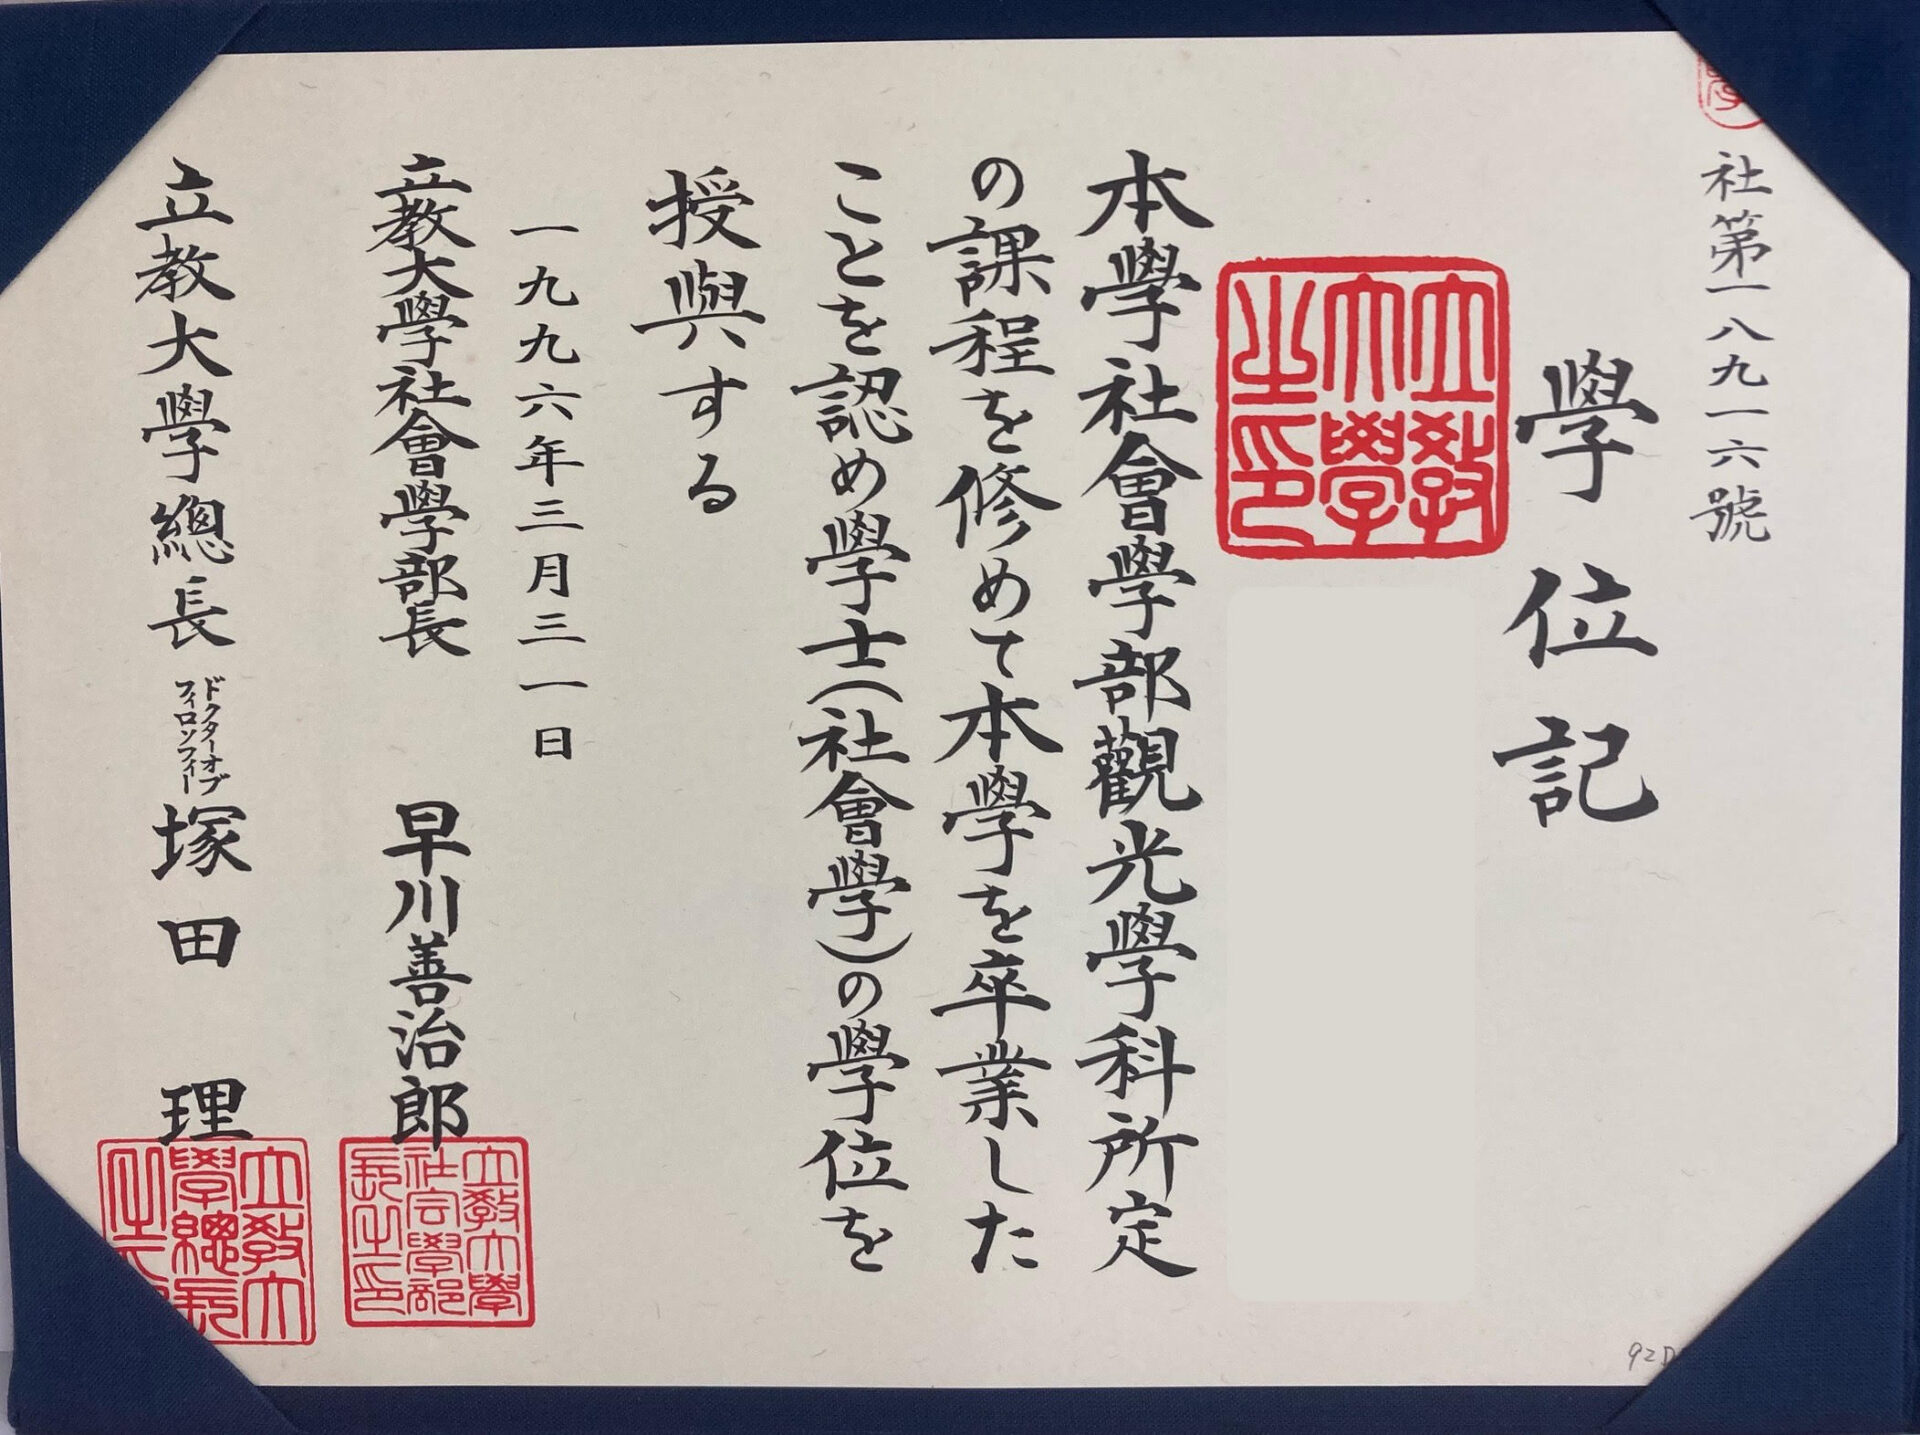 社第一八九一六號
學位記
立教大學之印
本學社會學部觀光學科所定
の課程を修めて本學を卒業した
ことを認め學士(社會學)の學位を
授與する
一九九六年三月三一日
立教大學社會學部長 早川善治郎
立教大學社会學部長之印
立教大學總長 ドクターオブフィロソフィー 塚田 理
立教大學總長之印
92D